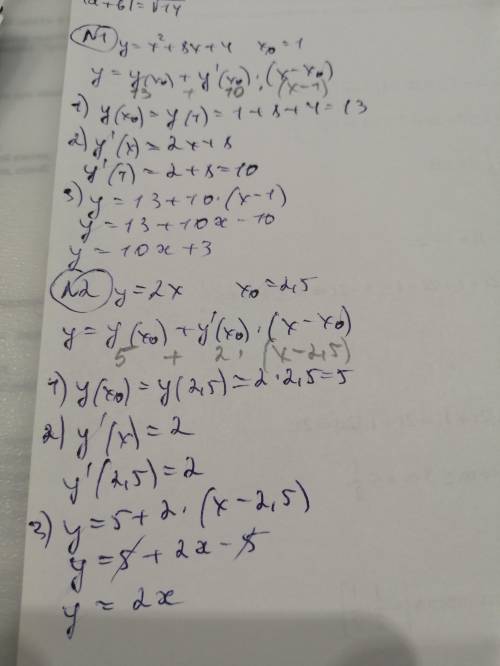 |a+6|=√14
N1 y=x²+8x+4 x₀=1
y=y(x₀)+y'(x₀)·(x-x₀)
13 + 10 · (x-1)
1) y(x₀)=y(1)=1+8+4=13
2) y'(x)=2x+8
y'(1)=2+8=10
3) y=13+10·(x-1)
y=13+10x-10
y=10x+3
N2 y=2x x₀=2,5
y=y(x₀)+y'(x₀)·(x-x₀)
5 + 2 · (x-2,5)
1) y(x₀)=y(2,5)=2·2,5=5
2) y'(x)=2
y'(2,5)=2
3) y=5+2·(x-2,5)
y=5+2x-5
y=2x